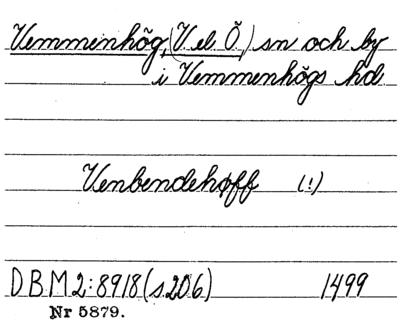 Vemmenhög, (V el. Ö.) sn och by
i Vemmenhögs hd.
Venbendehøff (!)
DBM 2:8918 (s. 206) 1499
Nr 5879.